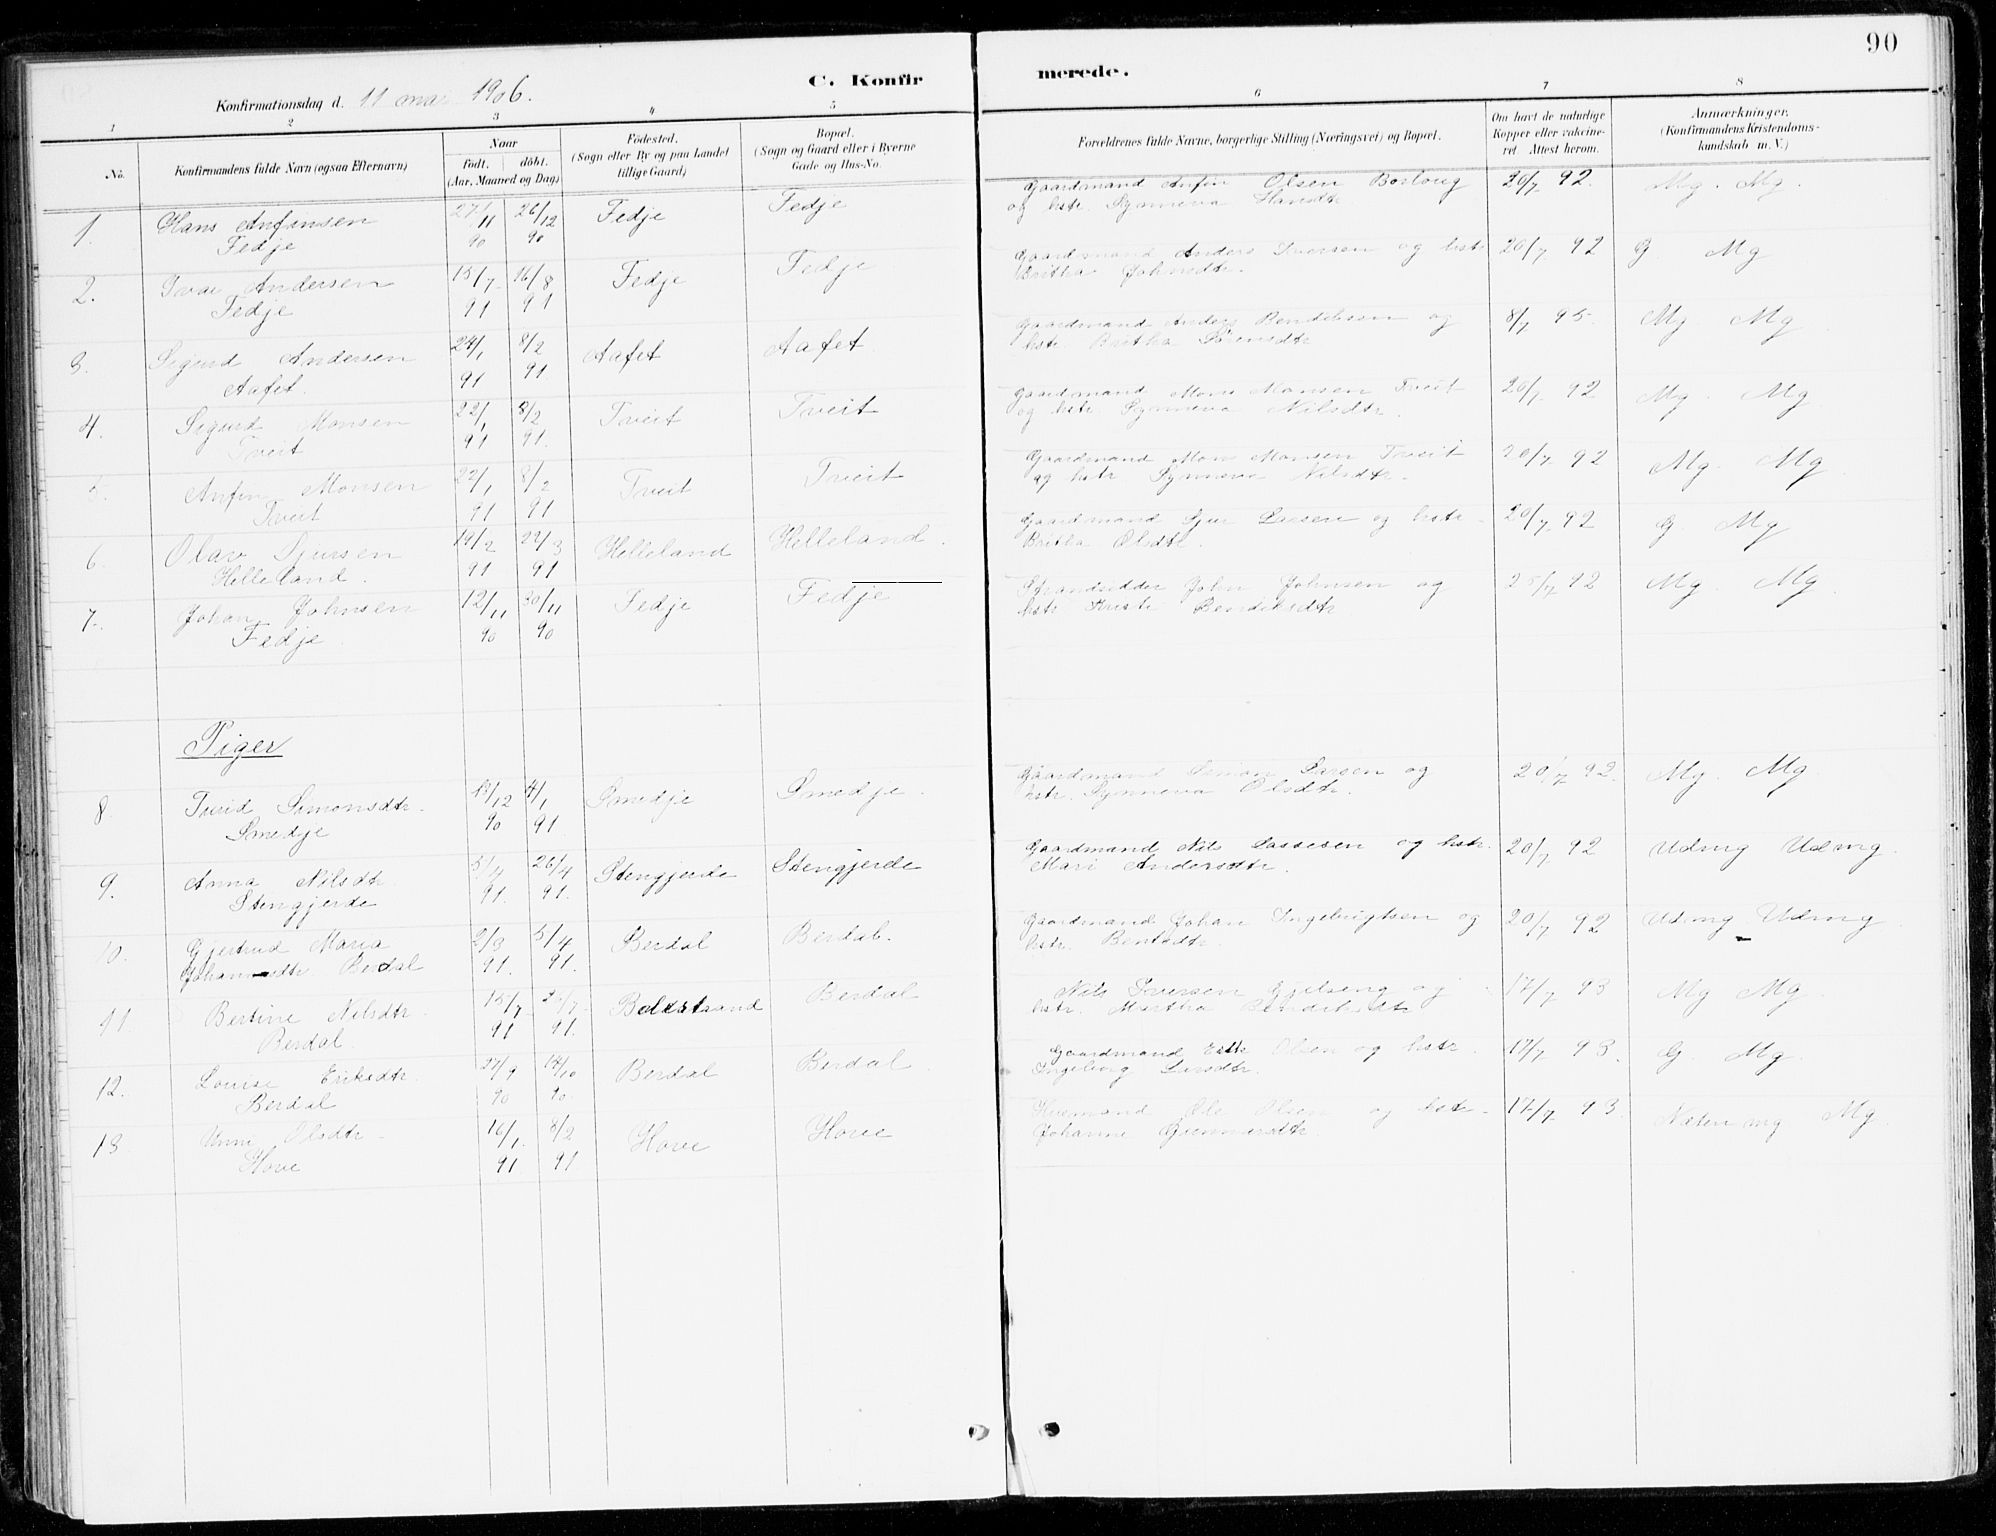 90
C. Konfirmerede.
Konfirmationsdag d. 11 mai 1906.
1 2 3 4 5 6 7 8
No.
Konfirmandens fulde Navn (ogsaa Efternavn)
Naar
født. døbt.
(Aar, Maaned og Dag)
Fødested.
(Sogn eller By og paa Landet
tillige Gaard)
Bopæl.
(Sogn og Gaard eller i Byerne
Gade og Hus-No.
Forældrenes fulde Navne, borgerlige Stilling (Næringsvei) og Bopæl.
Om havt de naturlige
Kopper eller vakcine-
ret. Attest herom.
Anmærkninger.
(Konfirmandens Kristendoms-
kundskab m. V.)
1. Hans Anfinsen 27/11 26/12 Fedje Fedje Gaardmand Anfin Olsen Borlaug 20/7 92. Mg. Mg.
Fedje 90 90 og hstr. Synneva Hansdtr.
2. Ivar Andersen 15/7 16/8 Fedje Fedje Gaardmand Anders Iversen og hstr 20/7 92 G Mg
Fedje 91 91 Britha Johnsdtr.
3. Sigurd Andersen 24/1 8/2 Aafet Aafet. Gaardmand Anders Bendiksen og 8/7 95 Mg. Mg
Aafet. 91 91 hstr. Britha Sørensdtr
4. Sigurd Monsen 22/1 8/2 Tveit Tveit Gaardmand Mons Monsen Tveit 20/7 92 Mg. Mg
Tveit 91 91. og hstr. Synneva Nilsdtr.
5. Anfin Monsen 22/1 8/2 Tveit Tveit Gaardmand Mons Monsen Tveit 20/7 92 Mg. Mg
Tveit 91 91 og hstr Synneva Nilsdtr.
6. Olav Sjursen 19/2 22/3 Helleland Helleland. Gaardmand Sjur Larsen og hstr. 20/7 92 G. Mg
Helleland. 91 91 Britha Olsdtr.
7. Johan Johnsen 12/11 30/11 Fedje Fedje Strandsidder John Johnsen og 25/7 92 Mg. Mg
Fedje. 90 90 hstr Bendiksdtr
Piger
8. Turid Simonsdtr. 13/12 4/1 Smedje Smedje. Gaardmand Simon Larsen og 20/7 92. Mg. Mg.
Smedje 90 91 hstr. Synneva Olsdtr.
9. Anna Nilsdtr. 5/4 26/4 Stengjerde Stengjerde Gaardmand Nils Lassesen og hstr. 20/7 92 Udmg Udmg.
Stengjerde 91. 91. Mari Andersdtr.
10. Gjertrud Maria 2/3 5/4 Berdal Berdal. Gaardmand Johan Ingebrigtsen og 20/7 92 Udmg Udmg.
Johannsdtr Berdal 91. 91. hstr. Bentsdtr.
11. Bertine Nilsdtr. 15/7 Baldstrand Berdal Nils Iversen Gjelseng og 17/7 93 Mg Mg.
Berdal. 91 91. hstr. Martha Bendiksdtr
12. Louise Eriksdtr. 27/9 19/10 Berdal Berdal. Gaardmand Erik Olsen og hstr. 17/7 93. G. Mg.
Berdal 90 90. Ingeborg Larsdtr.
13 Unni Olsdtr. 16/1 8/2 Hove Hove Husmand Ole Olsen og hstr. 17/7 93. Næsten mg Mg.
Hove 91 91. Johanne Gunnarsdtr.